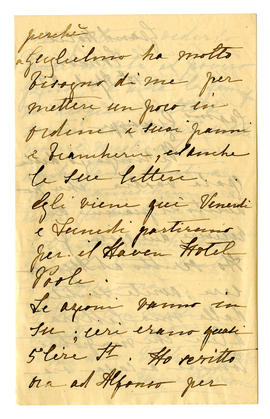 perchè
Guglielmo ha molto
bisogno di me per
mettere un poco in
ordine i suoi panni
e biancheria, ed anche
le sue lettere.
Egli viene qui Venerdi
e Lunedi partiremo
per il Haven Hotel
Poole.
Le azioni vanno in
su; ieri erano quasi
5 lire St. Ho scritto
ora ad Alfonso per